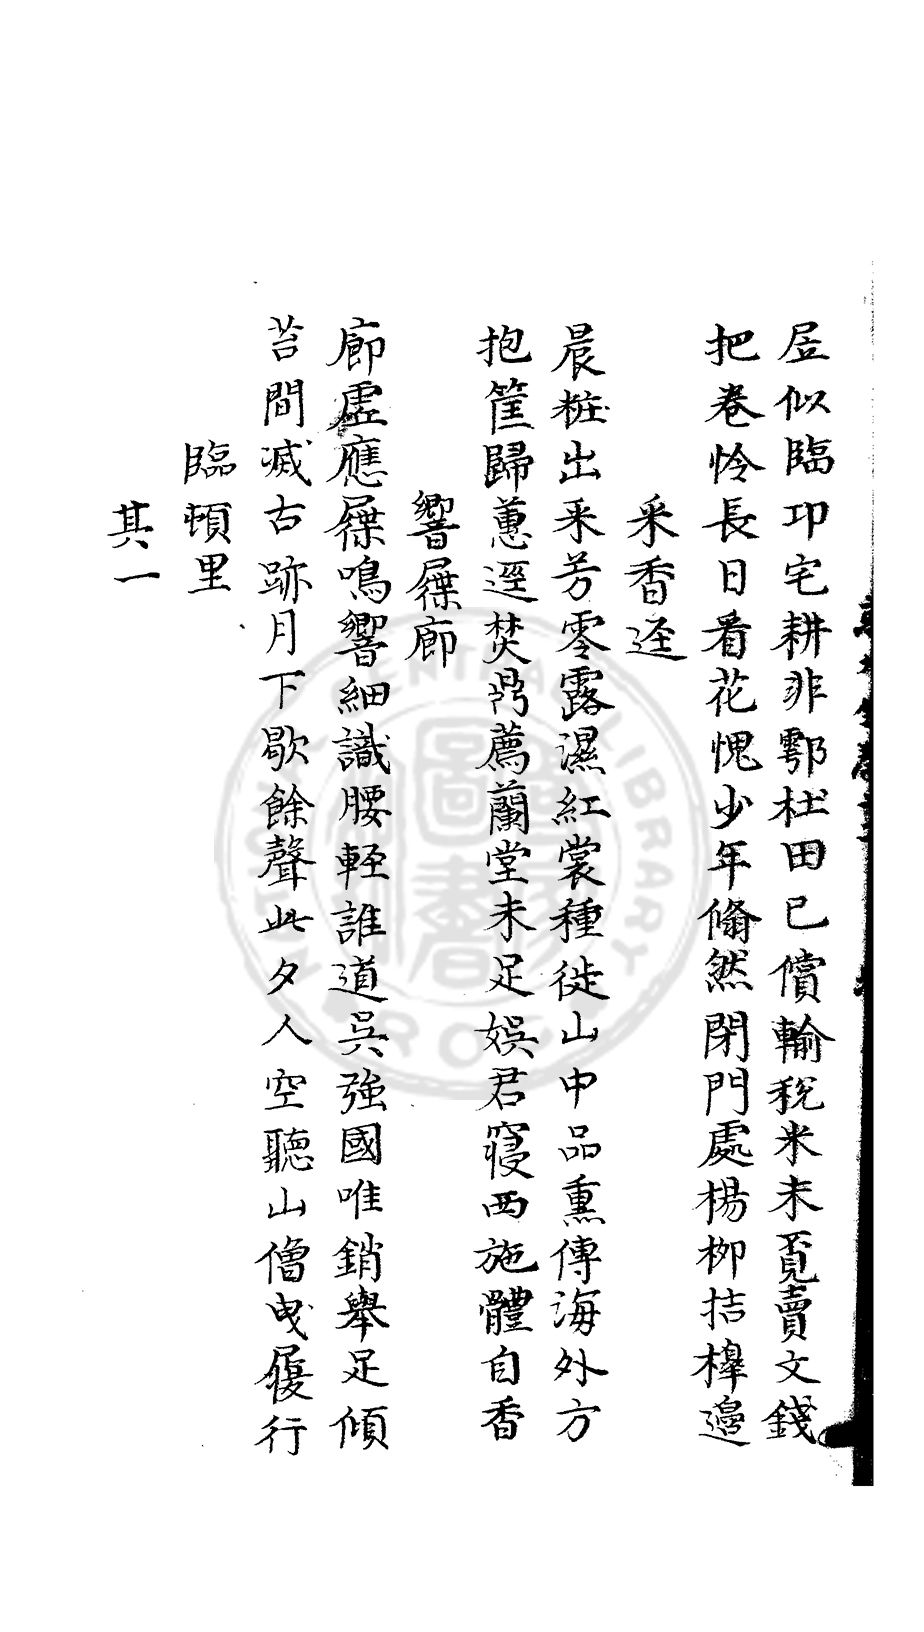 居似臨邛宅耕非鄠杜田已償輸稅米未覓賣文錢
把卷怜長日看花愧少年翛然閉門處楊柳桔槔邊
采香逕
晨粧出采芳零露濕紅裳種徙山中品熏傳海外方
抱筐歸蕙逕焚鼎薦蘭堂未足娛君寢西施體自香
響屧廊
廊虛應屧鳴響細識腰輕誰道吳強國唯銷舉足傾
苔間滅古跡月下歇餘聲此夕人空聽山僧曳履行
臨頓里
其一
CENTRAL LIBRARY
圖書